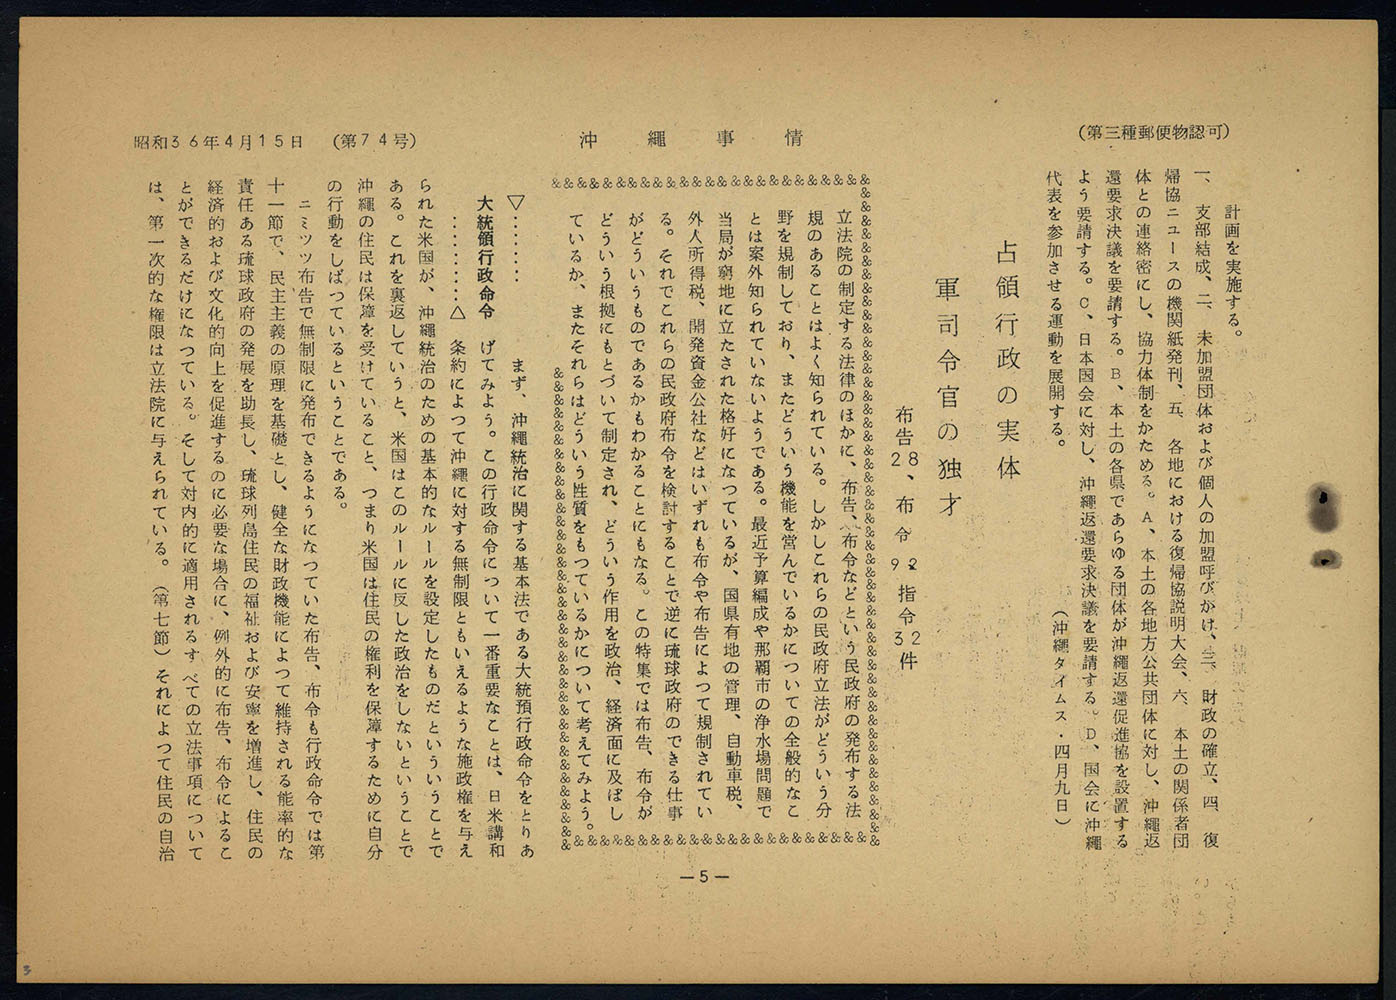 (第三種郵便物認可)
沖縄事情
昭和36年4月15日 (第74号)
計画を実施する。
一、支部結成、二、未加盟団体および個人の加盟呼びがけ、三、財政の確立、四、復
帰協ニュースの機関紙発刊、五、各地における復帰協説明大会、六、本土の関係者団
体との連絡密にし、協力体制をかためる。A、本土の各地方公共団体に対し、沖縄返
還要求決議を要請する。B、本土の各県であらゆる団体が沖縄返還促進協を設置する
よう要請する。C、日本国会に対し、沖縄返還要求決議を要請する。D、国会に沖縄
代表を参加させる運動を展開する。
(沖縄タイムス・四月九日)
占領行政の実体
軍司令官の独才
布告28、布令92指令32件
立法院の制定する法律のほかに、布告、布令などという民政府の発布する法
規のあることはよく知られている。しかしこれらの民政府立法がどういう分
野を規制しており、またどういう機能を営んでいるかについての全般的なこ
とは案外知られていないようである。最近予算編成や那覇市の浄水場問題で
当局が窮地に立たされた格好になつているが、国県有地の管理、自動車税、
外人所得税、開発資金公社などはいずれも布令や布告によつて規制されてい
る。それでこれらの民政府布令を検討することで逆に琉球政府のできる仕事
がどういうものであるかもわかることにもなる。この特集では布告、布令が
どういう根拠にもとづいて制定され、どういう作用を政治、経済面に及ぼし
ているか、またそれらはどういう性質をもつているかについて考えてみよう。
▽………
大統領行政命令
………△
まず、沖縄統治に関する基本法である大統預行政命令をとりあ
げてみよう。この行政命令について一番重要なことは、日米講和
条約によつて沖縄に対する無制限ともいえるような施政権を与え
られた米国が、沖縄統治のための基本的なルールを設定したものだといういうことで
ある。これを裏返していうと、米国はこのルールに反した政治をしないということで
沖縄の住民は保障を受けていること、つまり米国は住民の権利を保障するために自分
の行動をしばつているということである。
ニミッツ布告で無制限に発布できるようになつていた布告、布令も行政命令では第
十一節で、民主主義の原理を基礎とし、健全な財政機能によつて維持される能率的な
責任ある琉球政府の発展を助長し、琉球列島住民の福祉および安寧を増進し、住民の
経済的および文化的向上を促進するのに必要な場合に、例外的に布告、布令によるこ
とができるだけになつている。そして対内的に適用されるすべての立法事項について
は、第一次的な権限は立法院に与えられている。(第七節)それによつて住民の自治
—5—
3